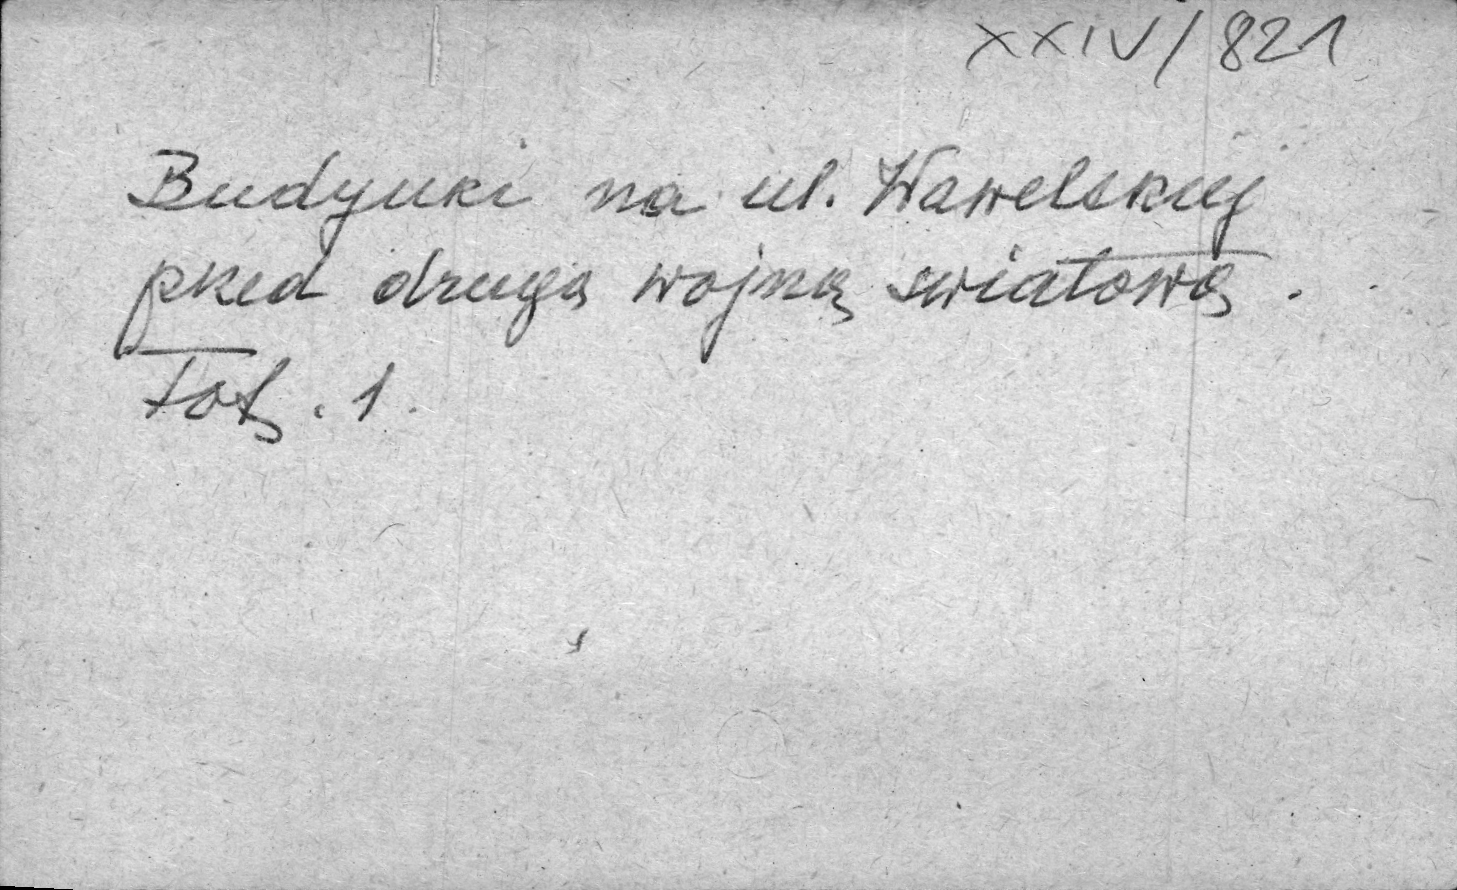 XXIV/821
Budynki na ul. Wawelskiej
przed drugą wojną światową.
Fot. 1.